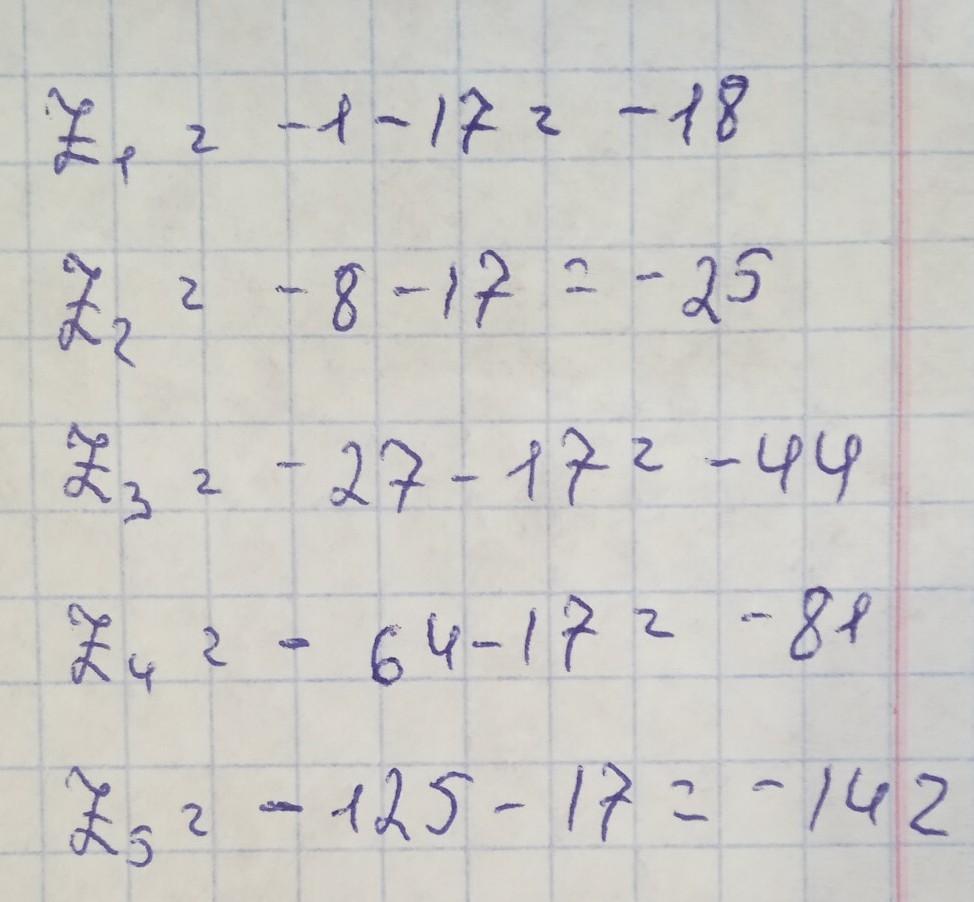 Z₁ = -1 - 17 = -18
Z₂ = -8 - 17 = -25
Z₃ = -27 - 17 = -44
Z₄ = -64 - 17 = -81
Z₅ = -125 - 17 = -142